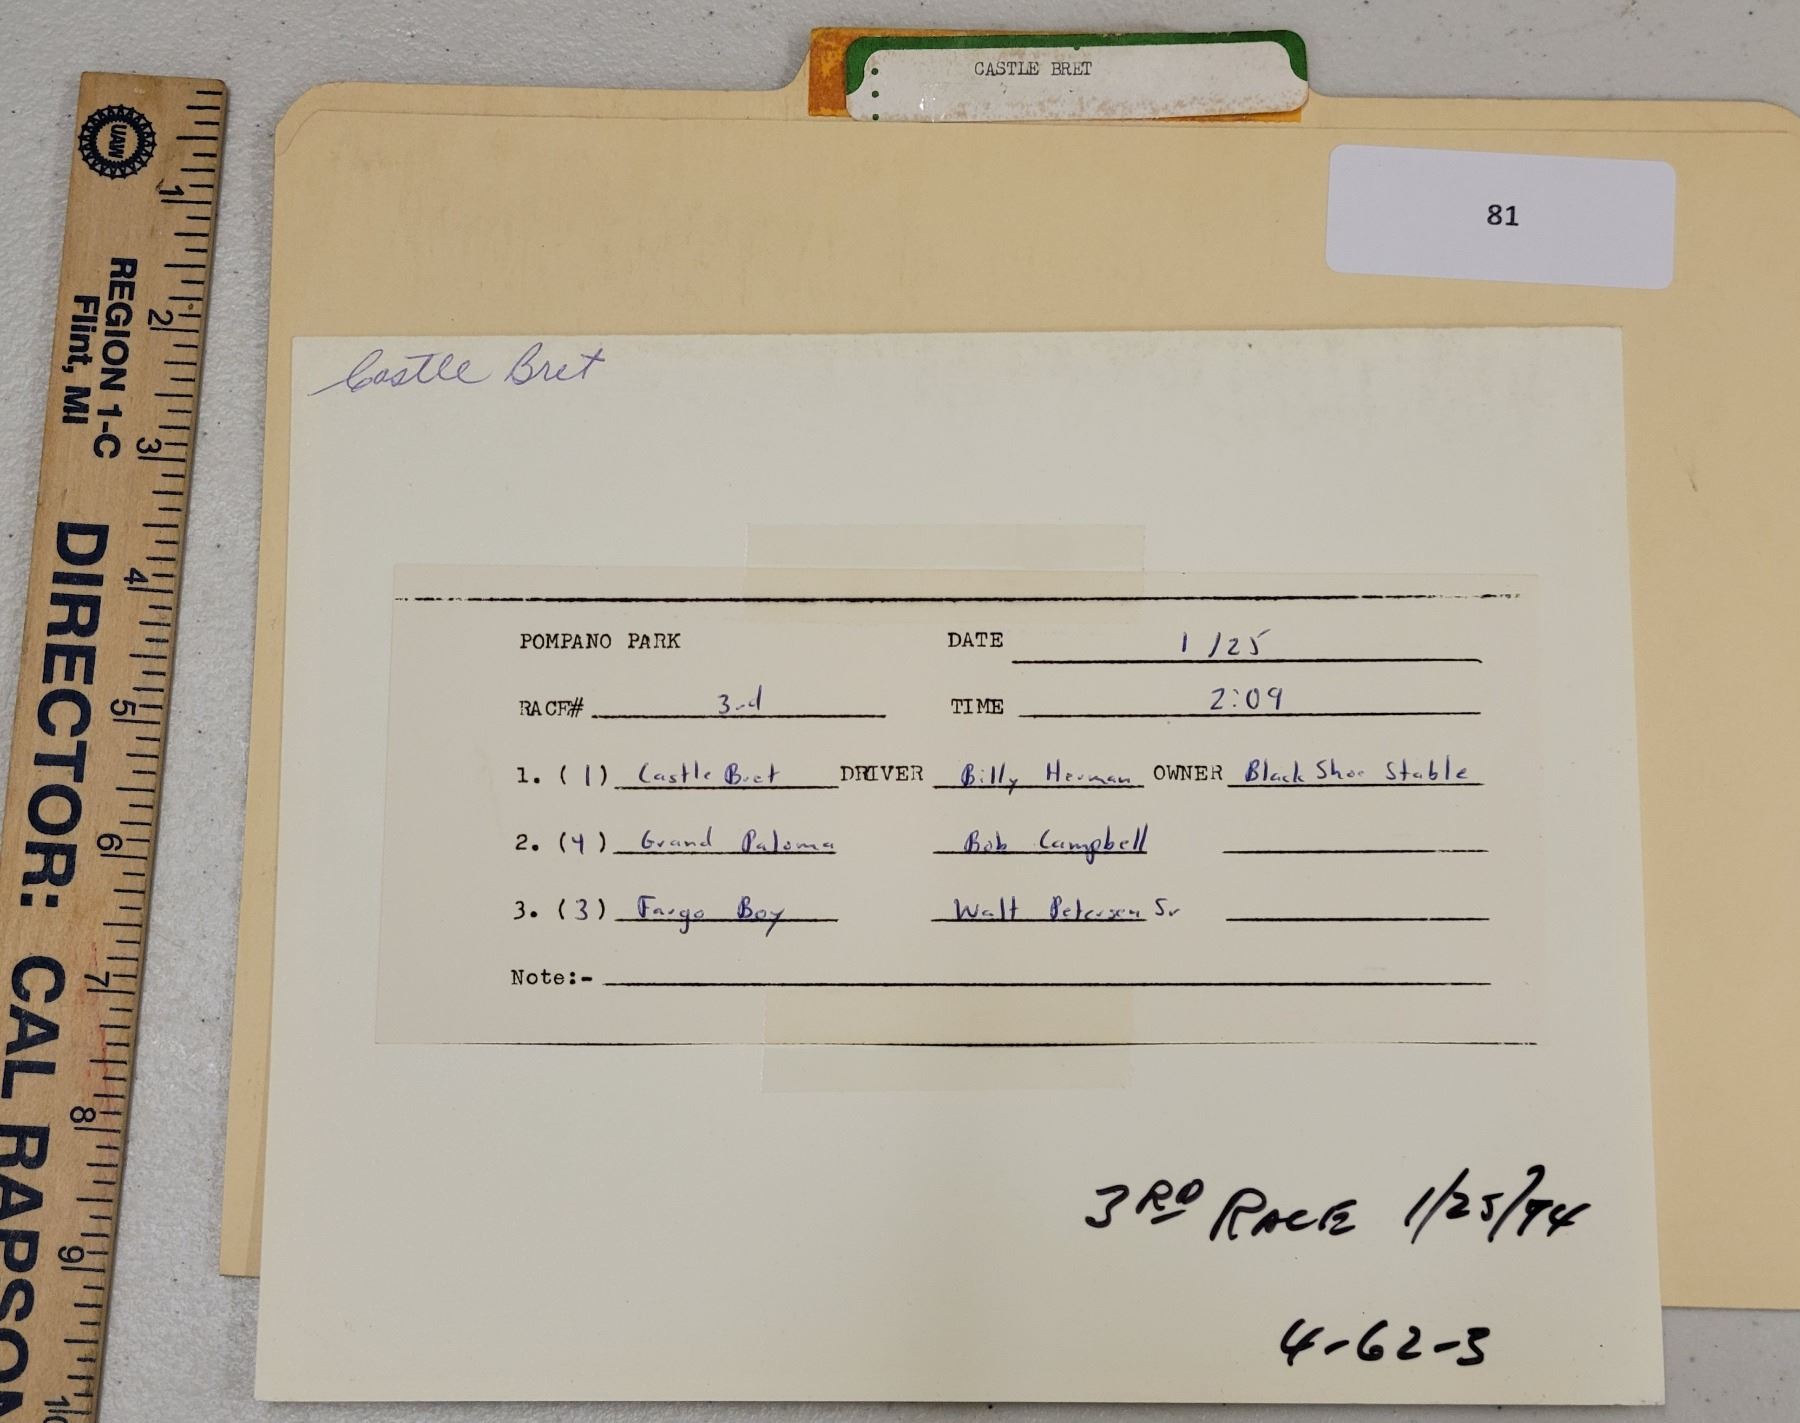 CASTLE BRET
81
Castle Bret
POMPANO PARK DATE 1/25
RACE# 3rd TIME 2:09
1. (1) Castle Bret DRIVER Billy Herman OWNER Black Shoe Stable
2. (4) Grand Paloma Bob Campbell
3. (3) Fargo Boy Walt Petersen Sr
Note:-
3RD RACE 1/25/74
4-62-3
UAW
REGION 1-C
Flint, MI
DIRECTOR: CAL RAPSON
1
2
3
4
5
6
7
8
9
10